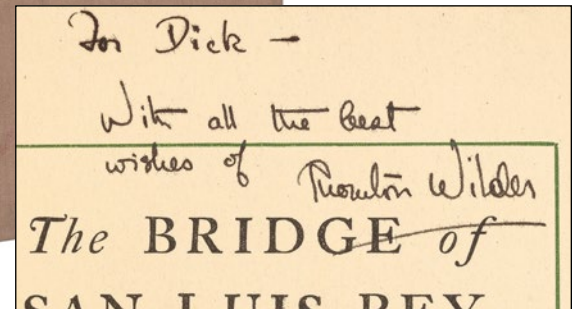 For Dick —
With all the best
wishes of Thornton Wilder
The BRIDGE of
SAN LUIS REY